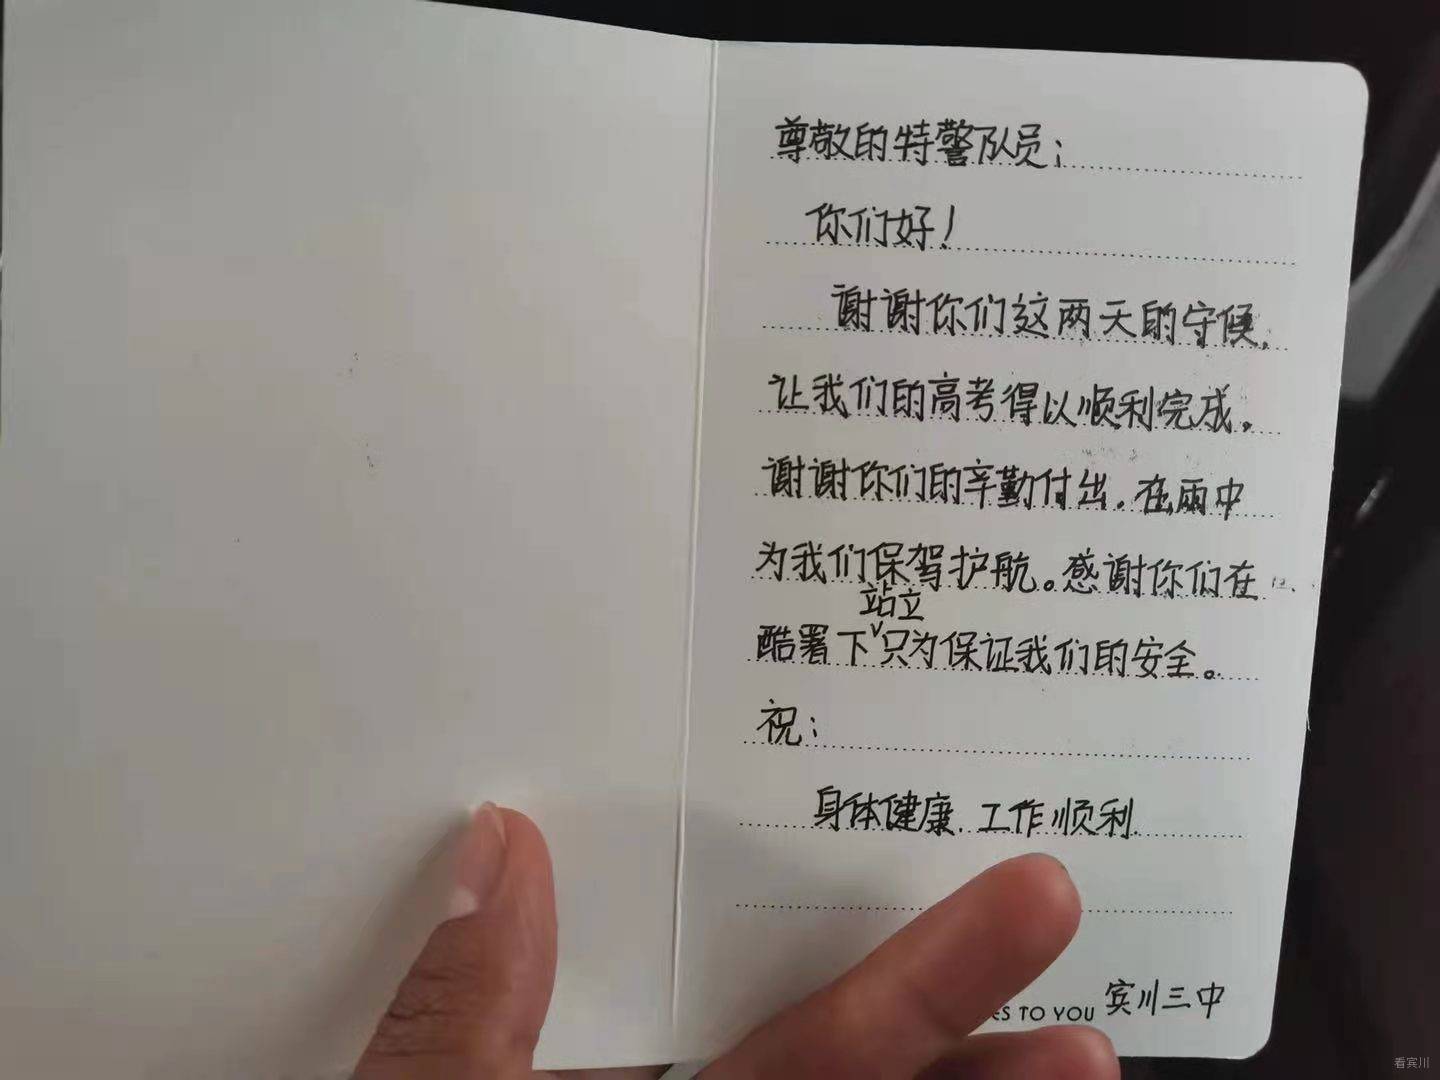 尊敬的特警队员：
你们好！
谢谢你们这两天的守候，
让我们的高考得以顺利完成。
谢谢你们的辛勤付出。在雨中
为我们保驾护航。感谢你们在
站立
酷署下∨只为保证我们的安全。
祝：
身体健康.工作顺利.
ES TO YOU 宾川三中
看宾川